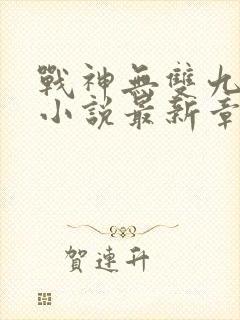 戰神無雙九
小說最新章
賀連升